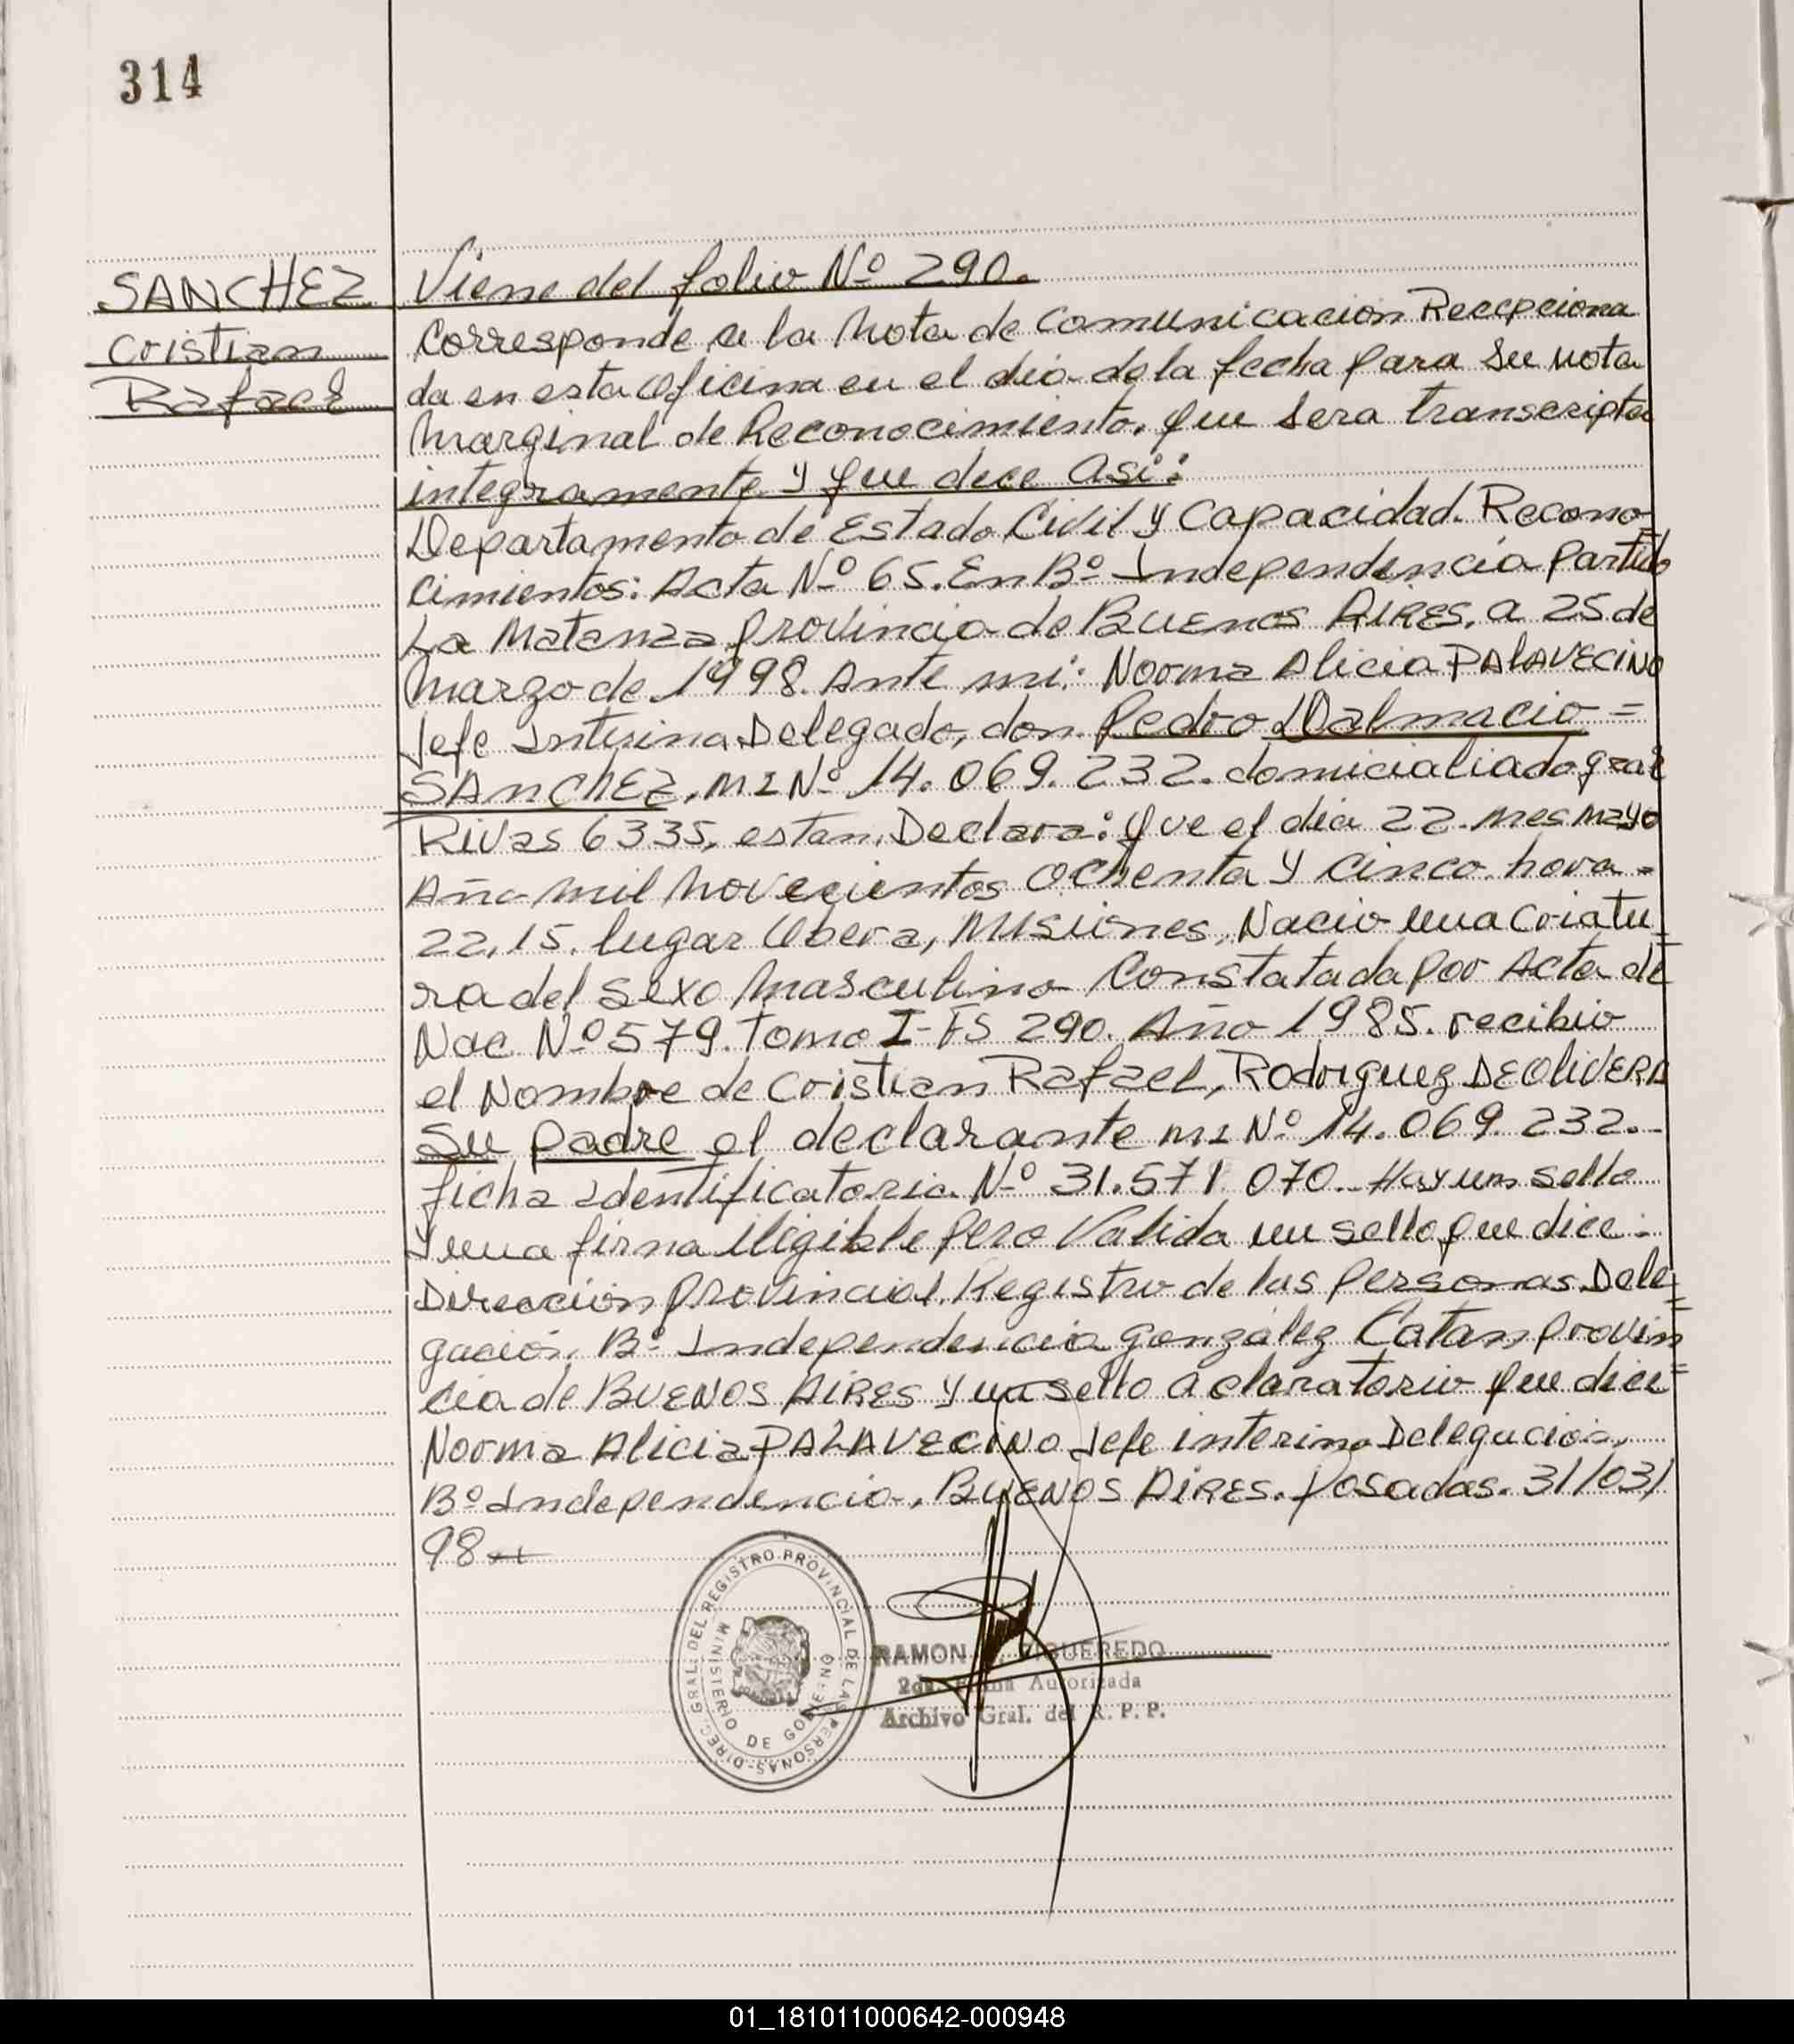 314
SANCHEZ
Cristian
Rafael
Viene del folio Nº 290.
Corresponde a la Nota de Comunicación Recepciona
da en esta Oficina en el dia de la fecha para su nota
Marginal de Reconocimiento, que sera transcripta
integramente y que dice Asi:
Departamento de Estado Civil y Capacidad. Recono
cimientos: Acta Nº 65. En Bº Independencia Partido
La Matanza provincia de BUENOS AIRES, a 25 de
Marzo de 1998. Ante mi: Norma Alicia PALAVECINO
Jefe Interina Delegado, don Pedro Dalmacio =
SAnchEZ, MI Nº 14.069.232. domicialiado gral
Rivas 6335, estan, Declara: que el dia 22 mes mayo
Año mil Novecientos Ochenta y cinco. hora =
22,15. lugar Obera, Misiones, Nacio una Criatu
ra del sexo Masculino Constatada por Acta de
Nac Nº 579. Tomo I-FS 290. Año 1985. recibio
el Nombre de Cristian Rafael, Rodriguez DEOLIVERA
Su padre el declarante MI Nº 14.069.232.-
ficha Identificatoria Nº 31.571.070. Hay un sello
y una firma iligible pero Valida un sello que dice:
Dirección Provincial Registro de las personas Dele=
gación, Bº Independencia gonzález Catan provin=
cia de BUENOS AIRES y un sello aclaratorio que dice
Norma Alicia PALAVECINO Jefe interino Delegación,
Bº Independencia, BUENOS AIRES. Posadas. 31/03/
98
DIREC. GRAL. DEL REGISTRO PROVINCIAL DE LAS PERSONAS
MINISTERIO DE GOBIERNO
RAMON FIGUEREDO
2da. Firma Autorizada
Archivo Gral. del R. P. P.
01_181011000642-000948